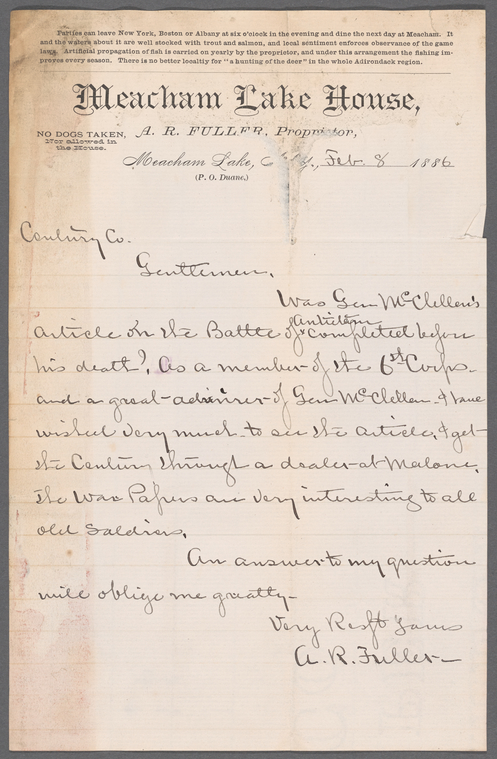 Parties can leave New York, Boston or Albany at six o'clock in the evening and dine the next day at Meacham. It
and the waters about it are well stocked with trout and salmon, and local sentiment enforces observance of the game
laws. Artificial propagation of fish is carried on yearly by the proprietor, and under this arrangement the fishing im-
proves every season. There is no better localtiy for "a hunting of the deer" in the whole Adirondack region.
Meacham Lake House,
NO DOGS TAKEN,
Nor allowed in
the House.
A. R. FULLER, Proprietor,
Meacham Lake, Feb. 8 1886
(P. O. Duane.)
Century Co.
Gentlemen,
Was Gen McClellen's
Antietam
article on the Battle of x completed before
his death? As a member of the 6th Corps.
and a great admirer of Gen McClellan. I have
wished very much to see the article, I get
the Century through a dealer at Malone,
The War Papers are very interesting to all
old Soldiers,
An answer to my question
will oblige me greatly-
Very Respt Yours
A. R. Fuller-